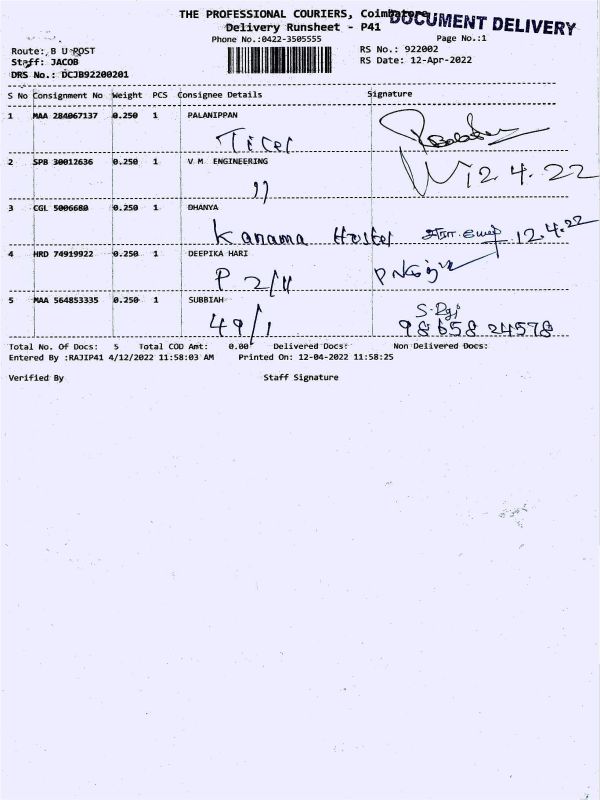 THE PROFESSIONAL COURIERS, Coimbatore
DOCUMENT DELIVERY
Delivery Runsheet - P41
Phone No.:0422-3505555
Page No.:1
Route: B U POST
RS No.: 922002
Staff: JACOB
RS Date: 12-Apr-2022
DRS No.: DCJB92200201
S No Consignment No Weight PCS Consignee Details Signature
1 MAA 284067137 0.250 1 PALANIPPAN
2 SPB 30012636 0.250 1 V M ENGINEERING
12.4.22
11
3 CGL 5006680 0.250 1 DHANYA
Kanama Hostel 12.4.22
4 HRD 74919922 0.250 1 DEEPIKA HARI
P 2/11
5 MAA 564853335 0.250 1 SUBBIAH
49/1 98658 24578
Total No. Of Docs: 5 Total COD Amt: 0.00 Delivered Docs: Non Delivered Docs:
Entered By :RAJIP41 4/12/2022 11:58:03 AM Printed On: 12-04-2022 11:58:25
Verified By Staff Signature